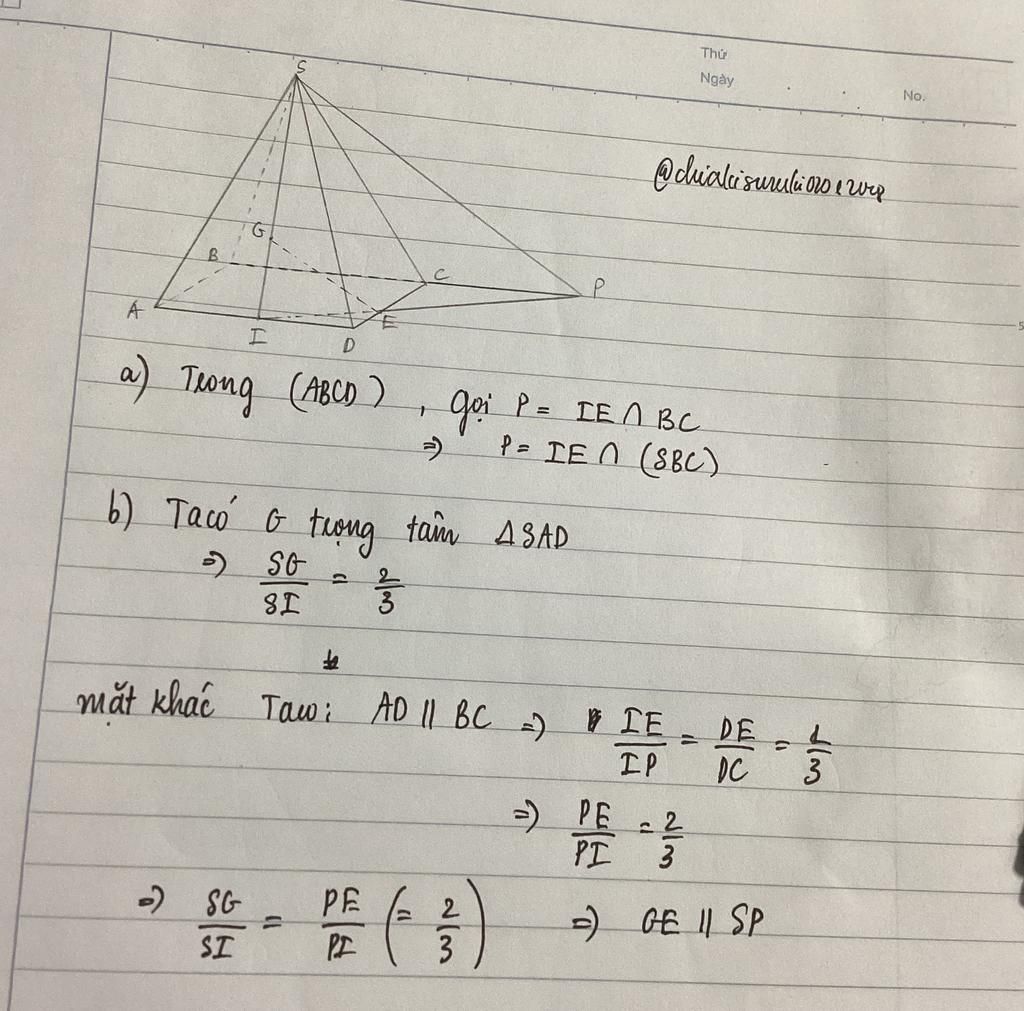 Thứ
Ngày
No.
S
G
B
C
P
A
E
I
D
a) Trong (ABCD), gọi P = IE ∩ BC
⇒ P = IE ∩ (SBC)
b) Ta có G trọng tâm ΔSAD
⇒ SG/SI = 2/3
mặt khác Ta có: AD // BC ⇒ IE/IP = DE/DC = 1/3
⇒ PE/PI = 2/3
⇒ SG/SI = PE/PI (= 2/3) ⇒ GE // SP